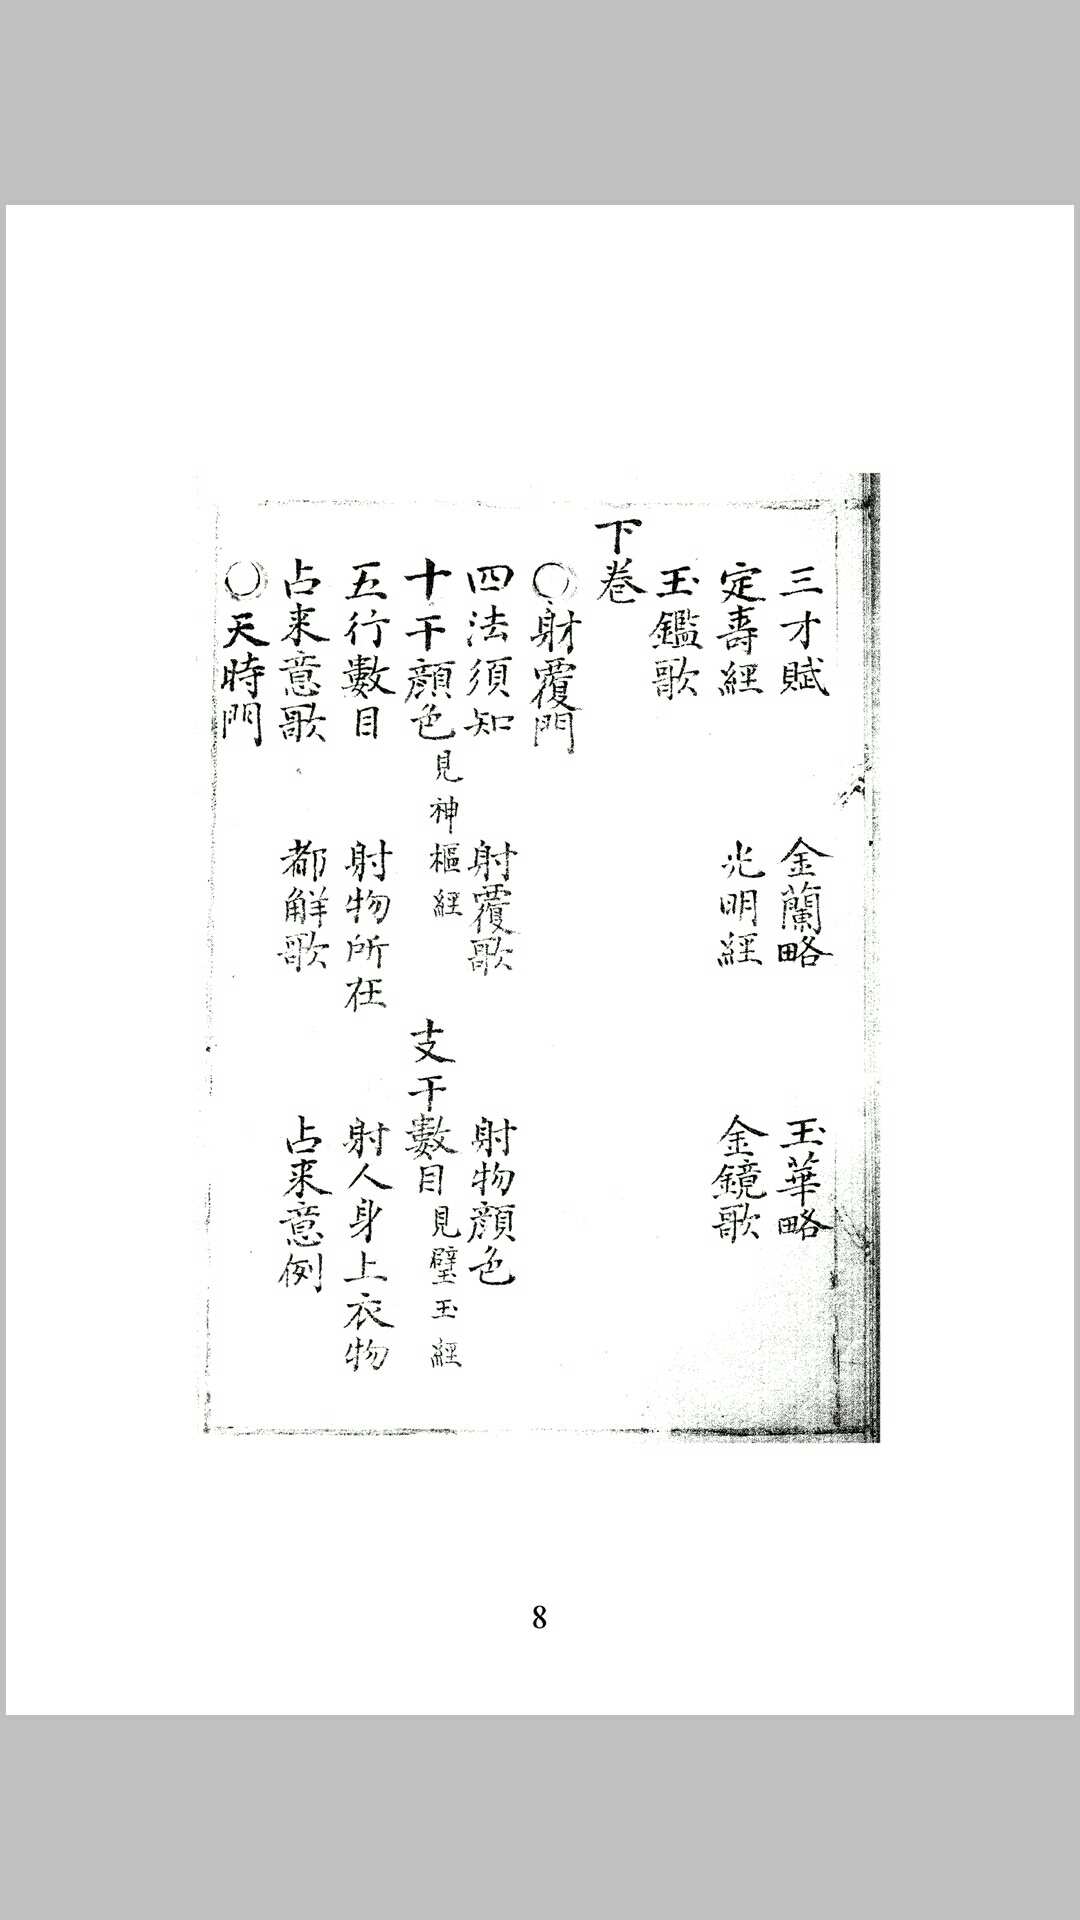 三才賦 金蘭略 玉華略
定壽經 光明經 金鏡歌
玉鑑歌
下卷
〇射覆門
四法須知 射覆歌 射物顔色
十干顔色見神樞經 支干數目見璧玉經
五行數目 射物所在 射人身上衣物
占来意歌 都觧歌 占来意例
〇天時門
8